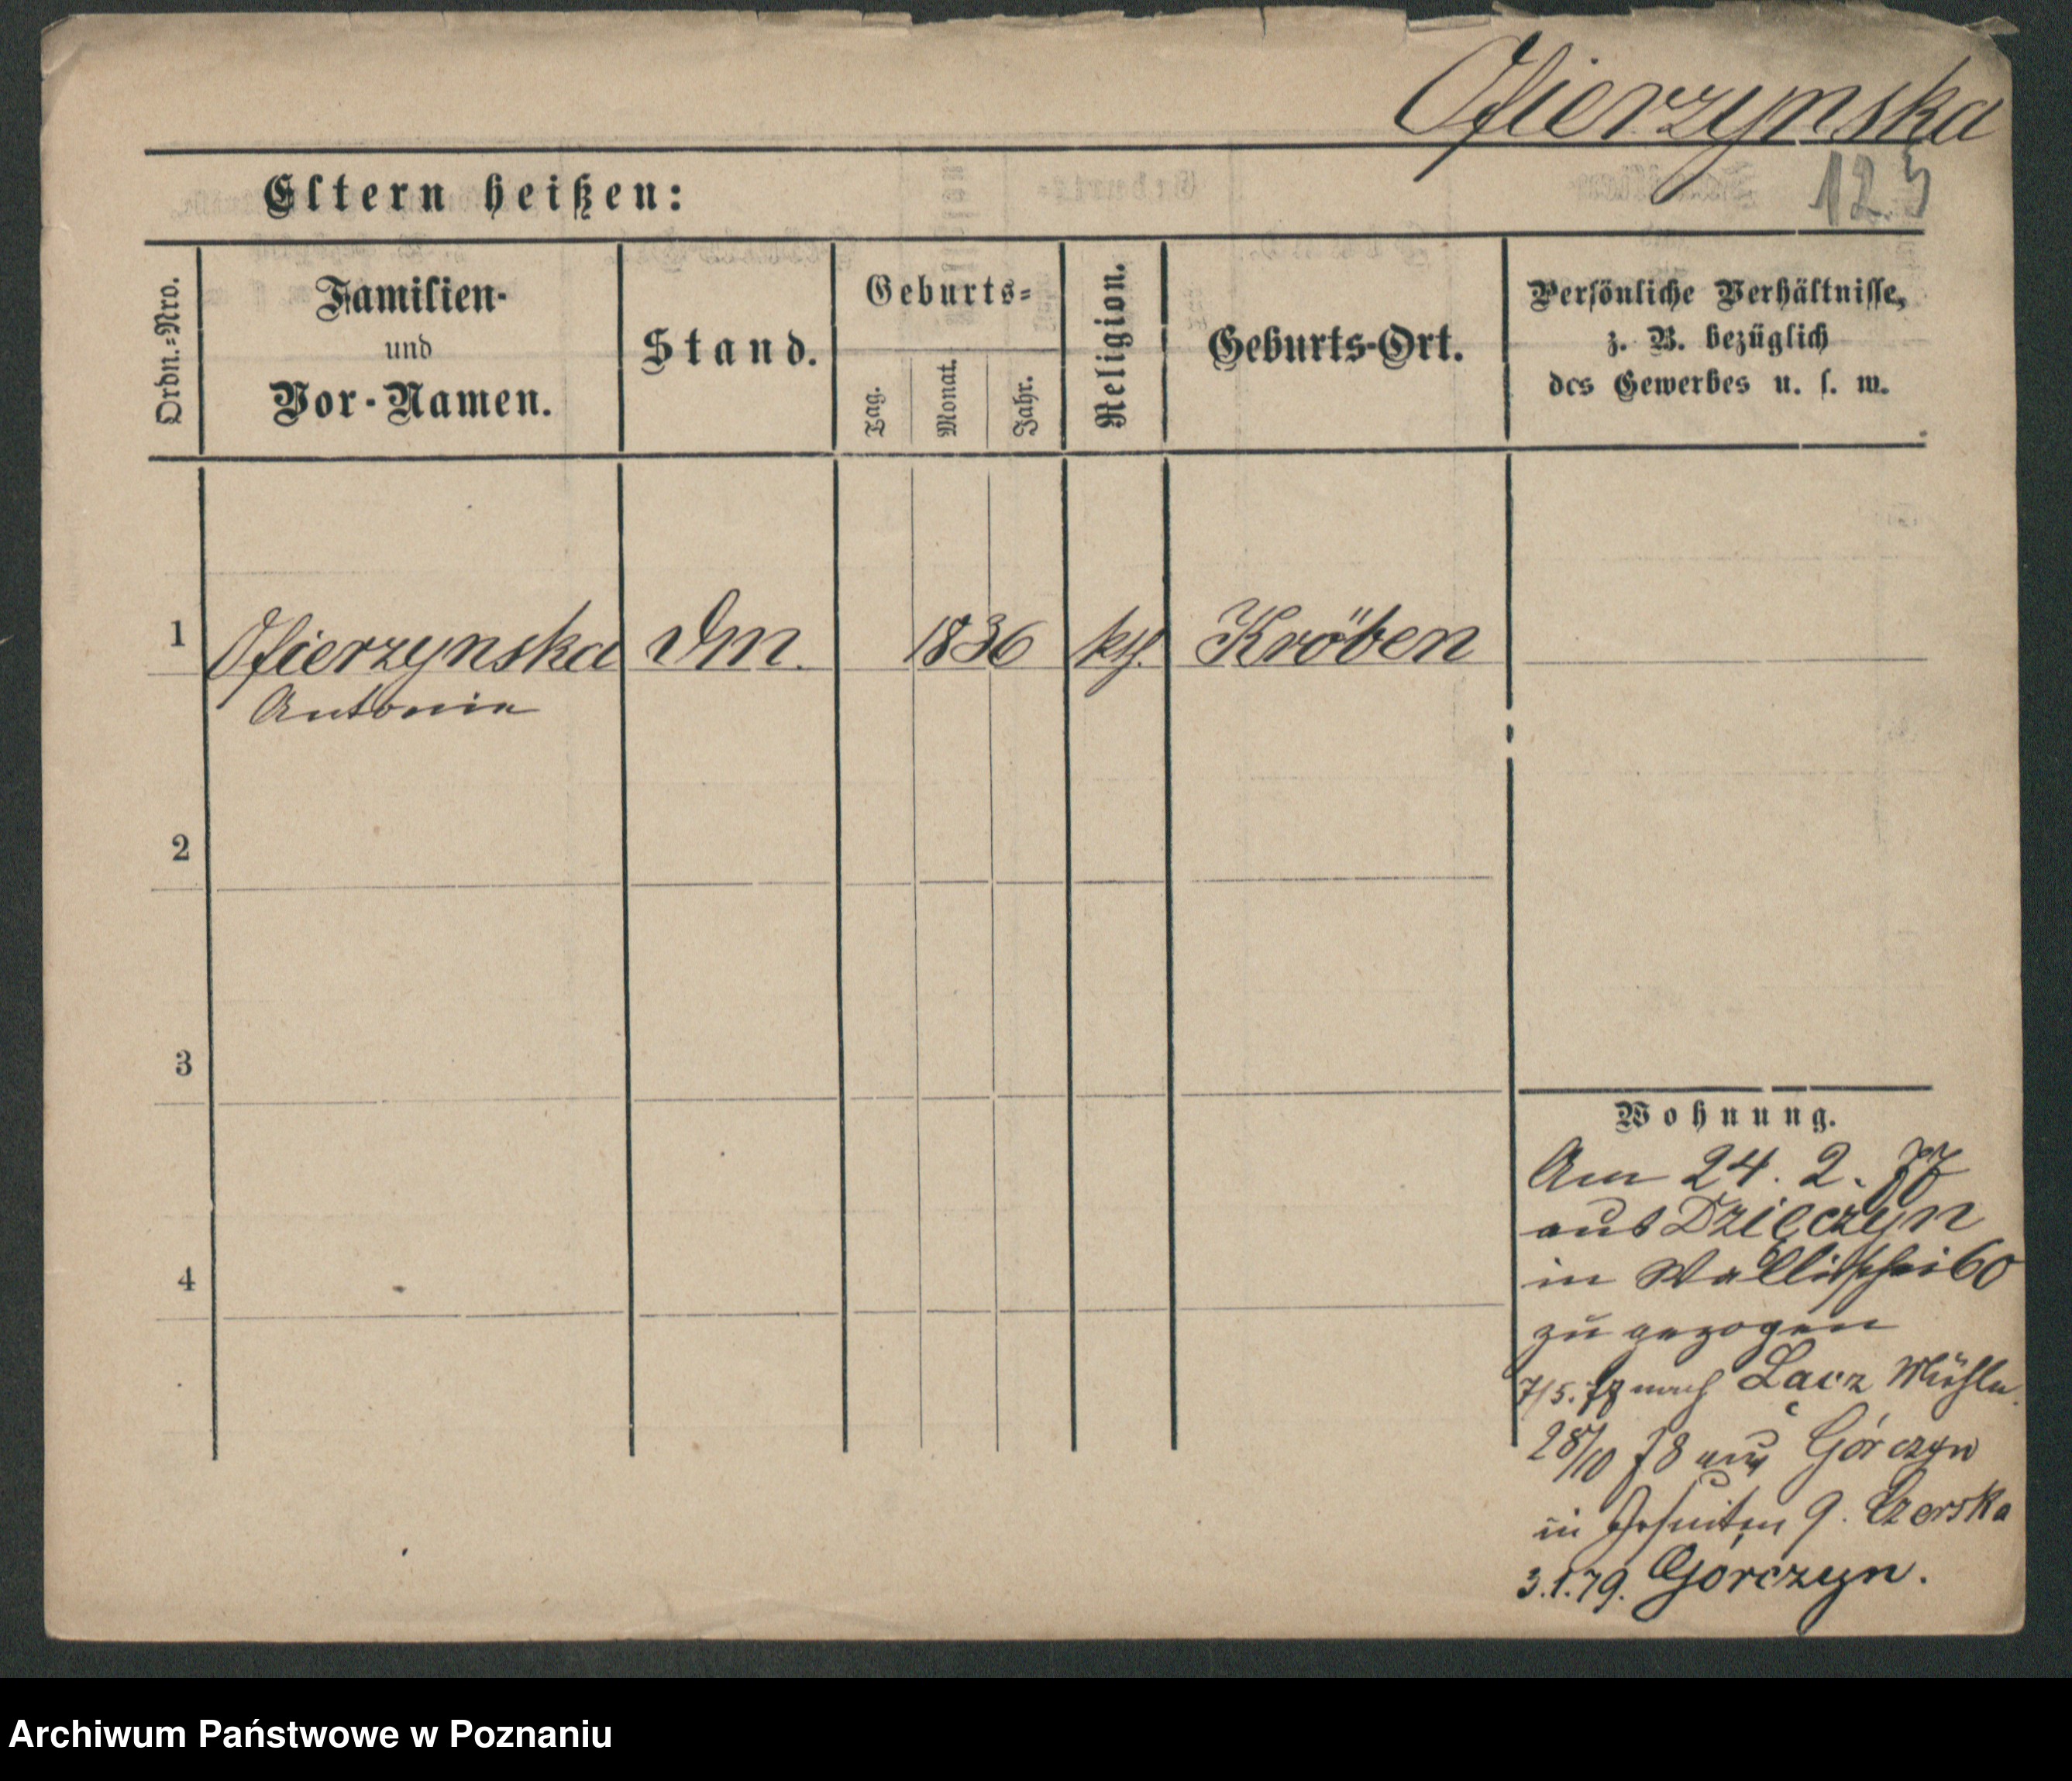 Ofierzynska
123
Eltern heißen:
Ordn.-Nro.
Familien-
und
Vor-Namen.
Stand.
Geburts-
Tag.
Monat.
Jahr.
Religion.
Geburts-Ort.
Persönliche Verhältnisse,
z. B. bezüglich
des Gewerbes u. s. w.
1 Ofierzynska Dm. 1836 kth. Kröben
Antonie
2
3
4
Wohnung.
Am 24. 2. 77
aus Dzięczyn
in Wallischei 60
zu gezogen
7/5. 77 nach Łącz Mühle
28/10 78 aus Górczyn
in Jesuiten 9. Czerska
3.1.79. Górczyn.
Archiwum Państwowe w Poznaniu